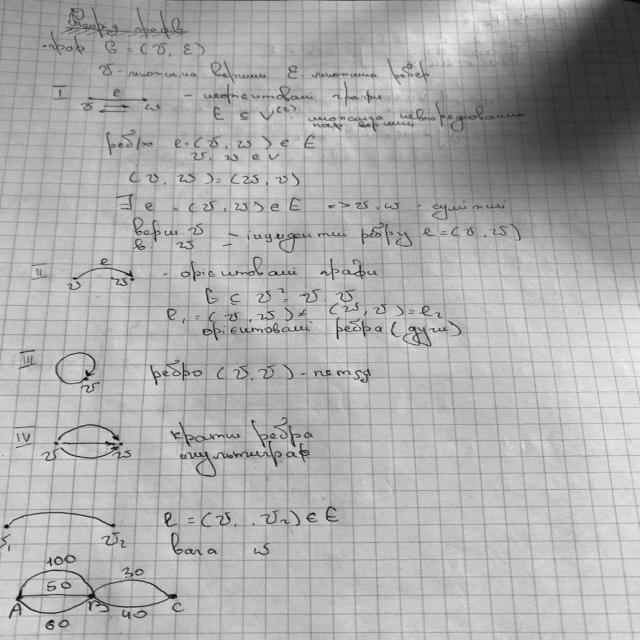 Теорія графів
граф G = (V, E)
V - множина вершин E - множина ребер
I v e w - неорієнтовані графи
E ⊆ V⁽²⁾ множина невпорядкованих
пар вершин
ребро e = (v, w) ∈ E
v, w ∈ V
(v, w) = (w, v)
∃ e = (v, w) ∈ E => v, w - суміжні
верш. v
в. w - інцидентні ребру e = (v, w)
II v e w - орієнтовані графи
E ⊂ V² = V × V
e₁ = (v, w) ≠ (w, v) = e₂
орієнтовані ребра (дуги)
III v ребро (v, v) - петля
IV v w кратні ребра
мультиграф
v₁ v₂ e = (v₁, v₂) ∈ E
вага w
100 30
50
A B C
60 40